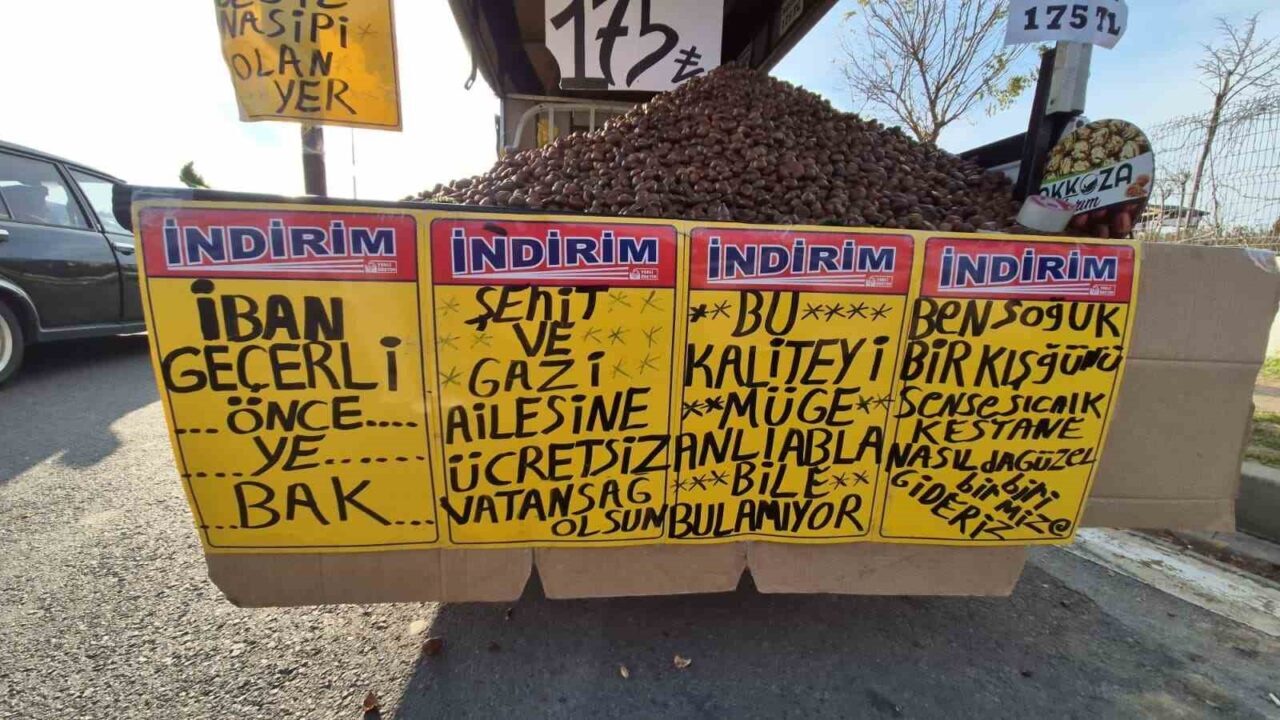 NASİPİ
OLAN
YER
175₺
175 TL
AKKOZA
İNDİRİM
İBAN
GEÇERLİ
...ÖNCE....
YE
BAK
İNDİRİM
ŞEHİT
VE
GAZİ
AİLESİNE
ÜCRETSİZ
VATANSAG
OLSUN
İNDİRİM
**BU****
KALİTEYİ
**MÜGE**
ANLIABLA
**BİLE**
BULAMIYOR
İNDİRİM
BEN SOĞUK
BİR KIŞ GÜNÜ
SENSE SICAIK
KESTANE
NASIL dA GÜZEL
birbiri
GİDERİZ
mize